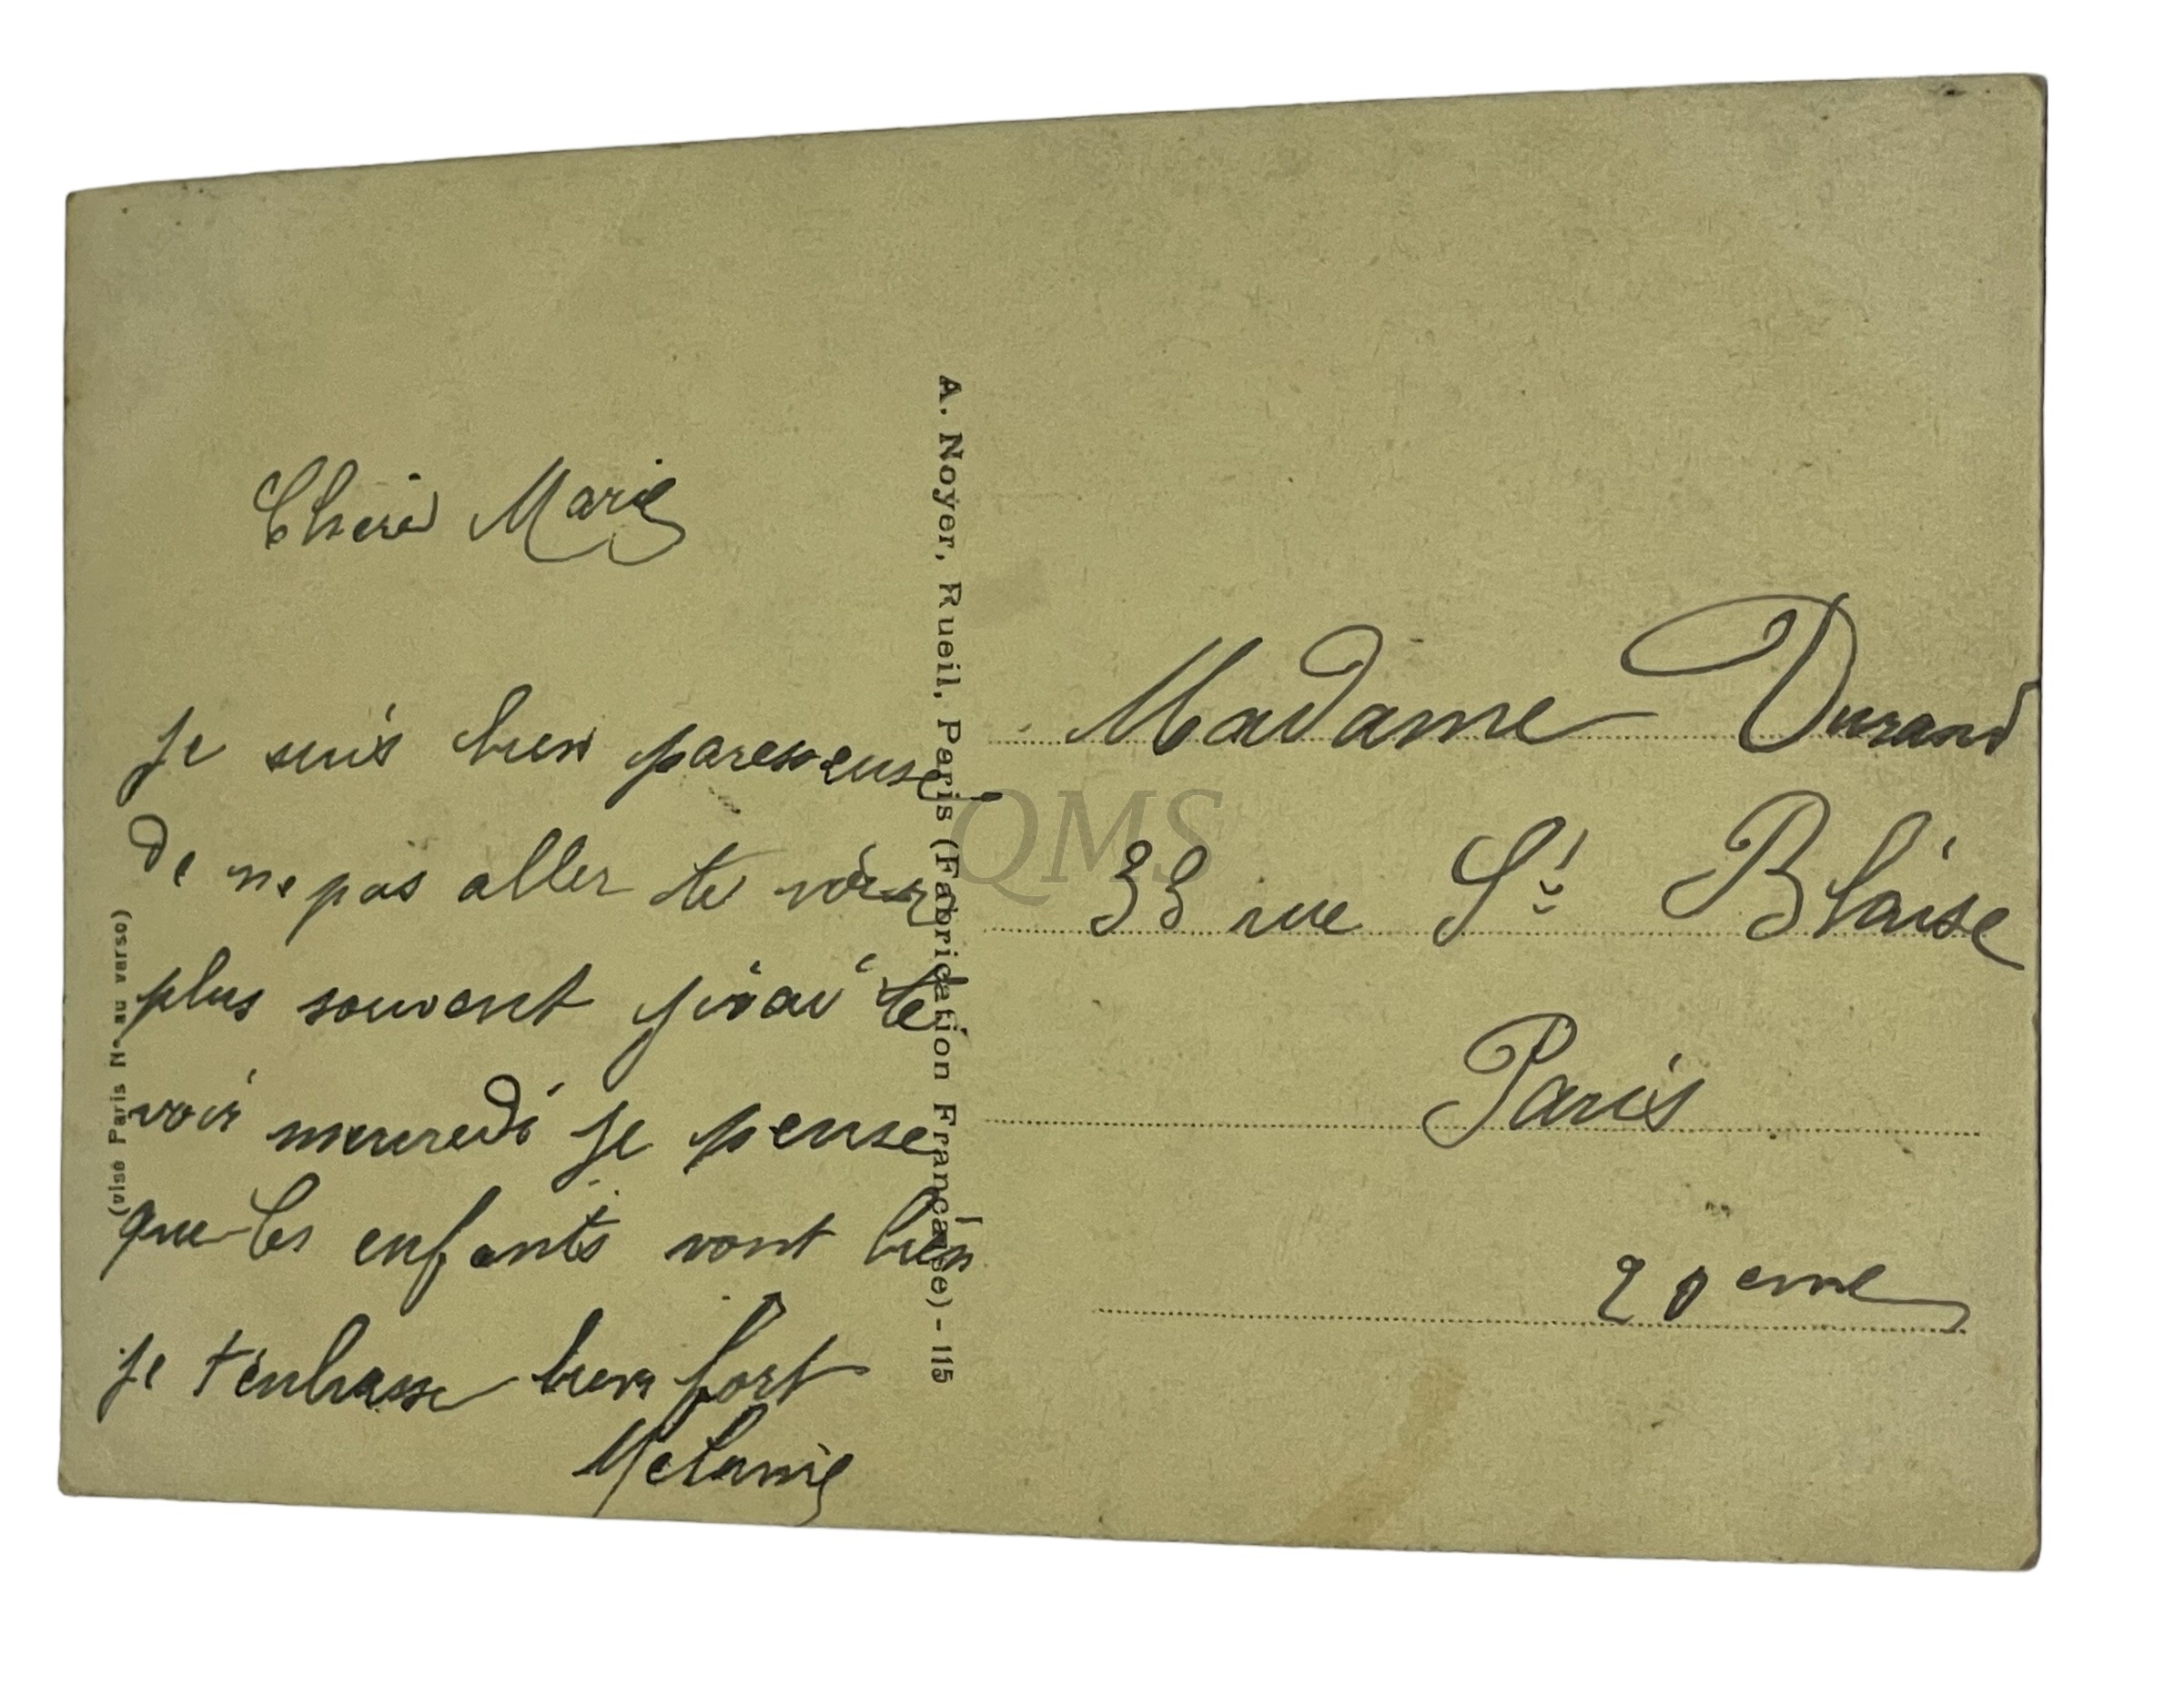 Cherie Marie
je suis bien paresseuse
de ne pas aller te voir
plus souvent j'irai te
voir mercredi je pense
que les enfants vont bien
je t'enbrasse bien fort
Melanie
(visé Paris No au verso)
A. Noyer, Rueil, Paris (Fabrication Française) - 115
Madame Durand
33 rue St Blaise
Paris
20eme
QMS